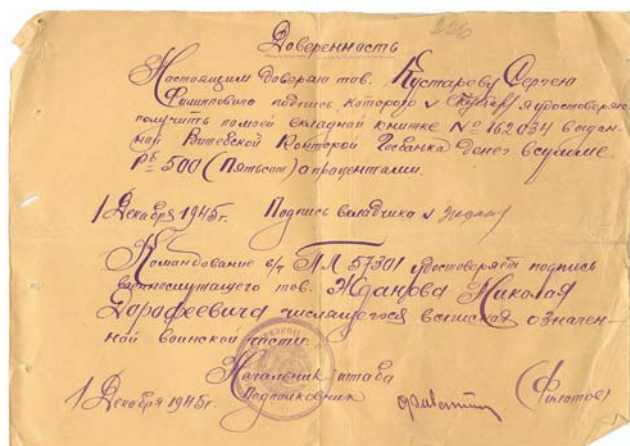 226
Доверенность
Настоящим доверяю тов. Кустареву Сергею
Филипповичу подпись которого удостоверяю
получить по моей вкладной книжке № 162034 выдан-
ной Витебской Конторой Госбанка денег в сумме
Рб 500 (Пятьсот) с процентами.
1 Декабря 1945г. Подпись вкладчика
Командование в/ч ПП 57301 удостоверяет подпись
военнослужащего тов. Жданова Николая
Дорофеевича числящегося в списках означен-
ной воинской части.
Начальник штаба
Подполковник
1 Декабря 1945г. (Филатов)